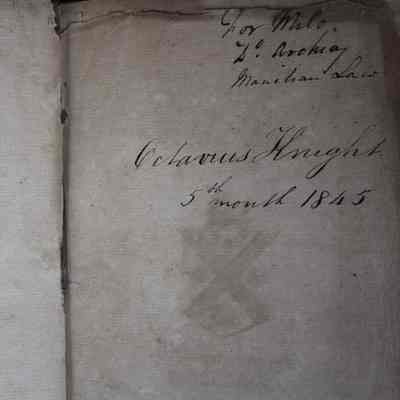 For Milo.
Do. Archias
Manilian Law
Octavius Knight
5th month 1845